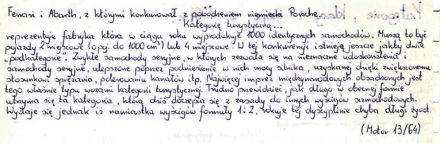 Ferrari i Abarth, z którymi konkurował z powodzeniem niemiecki Porsche.
Kategorię turystyczną...
reprezentuje fabryka która w ciągu roku wyprodukuje 1000 identycznych samochodów. Muszą to być
pojazdy 2 miejscowe (o poj. do 1000 cm³) lub 4 miejscowe. W tej konkurencji istnieją jeszcze jakby dwie
"podkategorie". Zwykłe samochody seryjne, w których zezwala się na nieznaczne udoskonalenia i
samochody seryjne, ulepszone poprzez podniesienie w nich mocy silnika, uzyskanej dzięki zwiększonemu
stosunkowi sprężania, polerowaniu kanałów itp. Najwięcej imprez międzynarodowych obsadzonych jest
tego właśnie typu wozami kategorii turystycznej. Trudno przewidzieć, jak długo w obecnej formie
utrzyma się ta kategoria, którą dziś doczepia się z zasady do innych wyścigów samochodowych.
Wydaje się jednak iż namiastka wyścigów formuły 1 i 2, rokuje tej dyscyplinie chyba długi żywot.
(Motor 13/64)